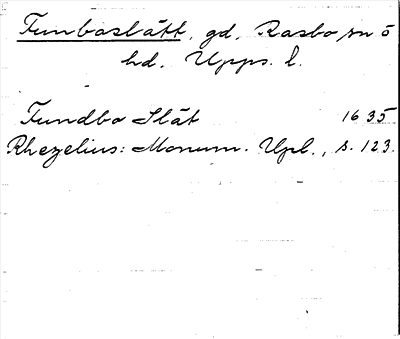 Funboslätt, gd, Rasbo sn o
hd. Upps. l.
Fundbo Slät 1635
Rhezelius: Monum. Upl., s. 123.